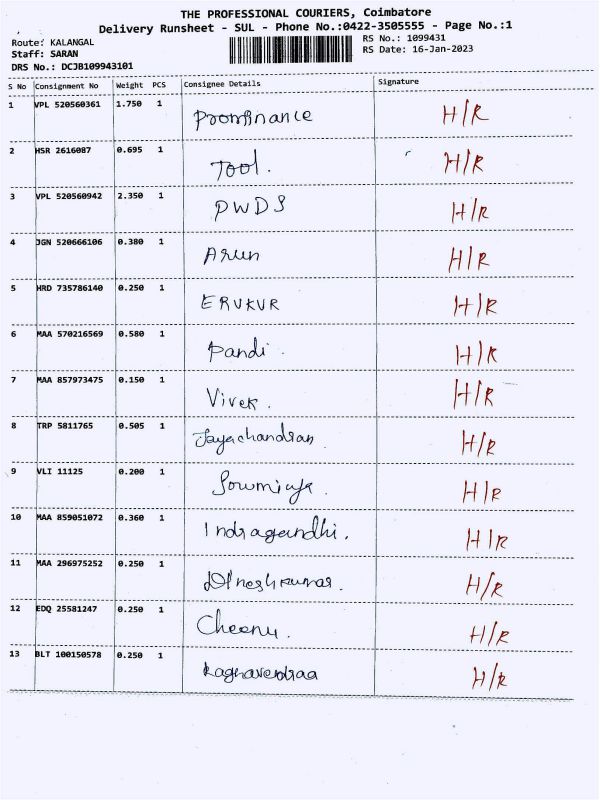 THE PROFESSIONAL COURIERS, Coimbatore
Delivery Runsheet - SUL - Phone No.:0422-3505555 - Page No.:1
Route: KALANGAL
Staff: SARAN
DRS No.: DCJB109943101
RS No.: 1099431
RS Date: 16-Jan-2023
S No Consignment No Weight PCS Consignee Details Signature
1 VPL 520560361 1.750 1 Promfinance H/R
2 HSR 2616087 0.695 1 Tool. H/R
3 VPL 520560942 2.350 1 PWDS H/R
4 JGN 520666106 0.380 1 Arun H/R
5 HRD 735786140 0.250 1 ERUKUR H/R
6 MAA 570216569 0.580 1 Pandi. H/R
7 MAA 857973475 0.150 1 Vivek. H/R
8 TRP 5811765 0.505 1 Jayachandran H/R
9 VLI 11125 0.200 1 Sowmiya. H/R
10 MAA 859051072 0.360 1 Indragandhi. H/R
11 MAA 296975252 0.250 1 Dineshkumar. H/R
12 EDQ 25581247 0.250 1 Cheenu. H/R
13 BLT 100150578 0.250 1 Raghavendraa H/R